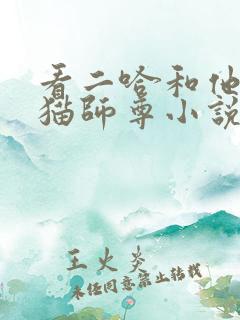 看二哈和他
猫師尊小說
王火炎
未经同意禁止转载